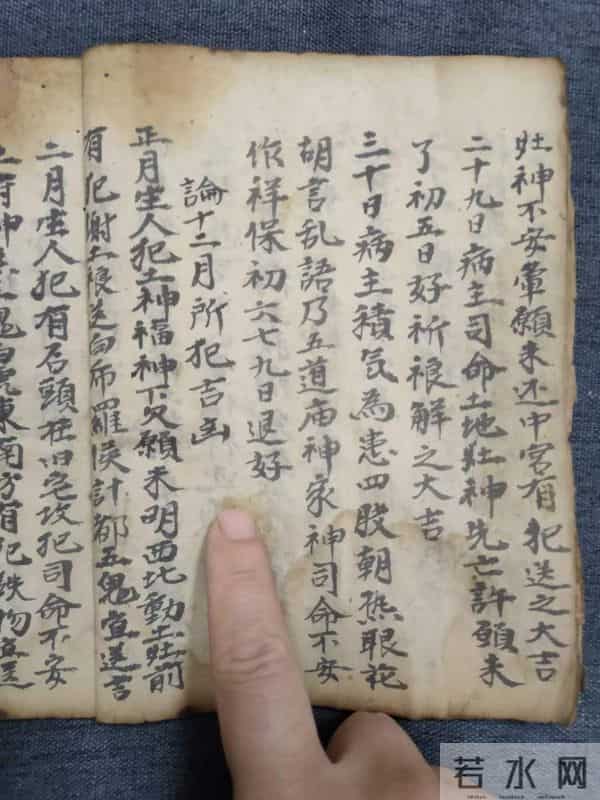 灶神不安葷願未还中宮有犯送之大吉
二十九日病主司命土地灶神先亡許願未
了初五日好祈禳解之大吉
三十日病主積気為患四肢朝熱眼花
胡言乱語乃五道庙神家神司命不安
作祥保初六七九日退好
論十二月所犯吉凶
正月生人犯土神福神下欠願未明西北動土灶前
有犯谢土禳送白虎羅睺計都五鬼宜送吉
二月生人犯有石頭在旧宅攻犯司命不安
土府神五鬼白虎東南方有犯鉄物宜送
若水网